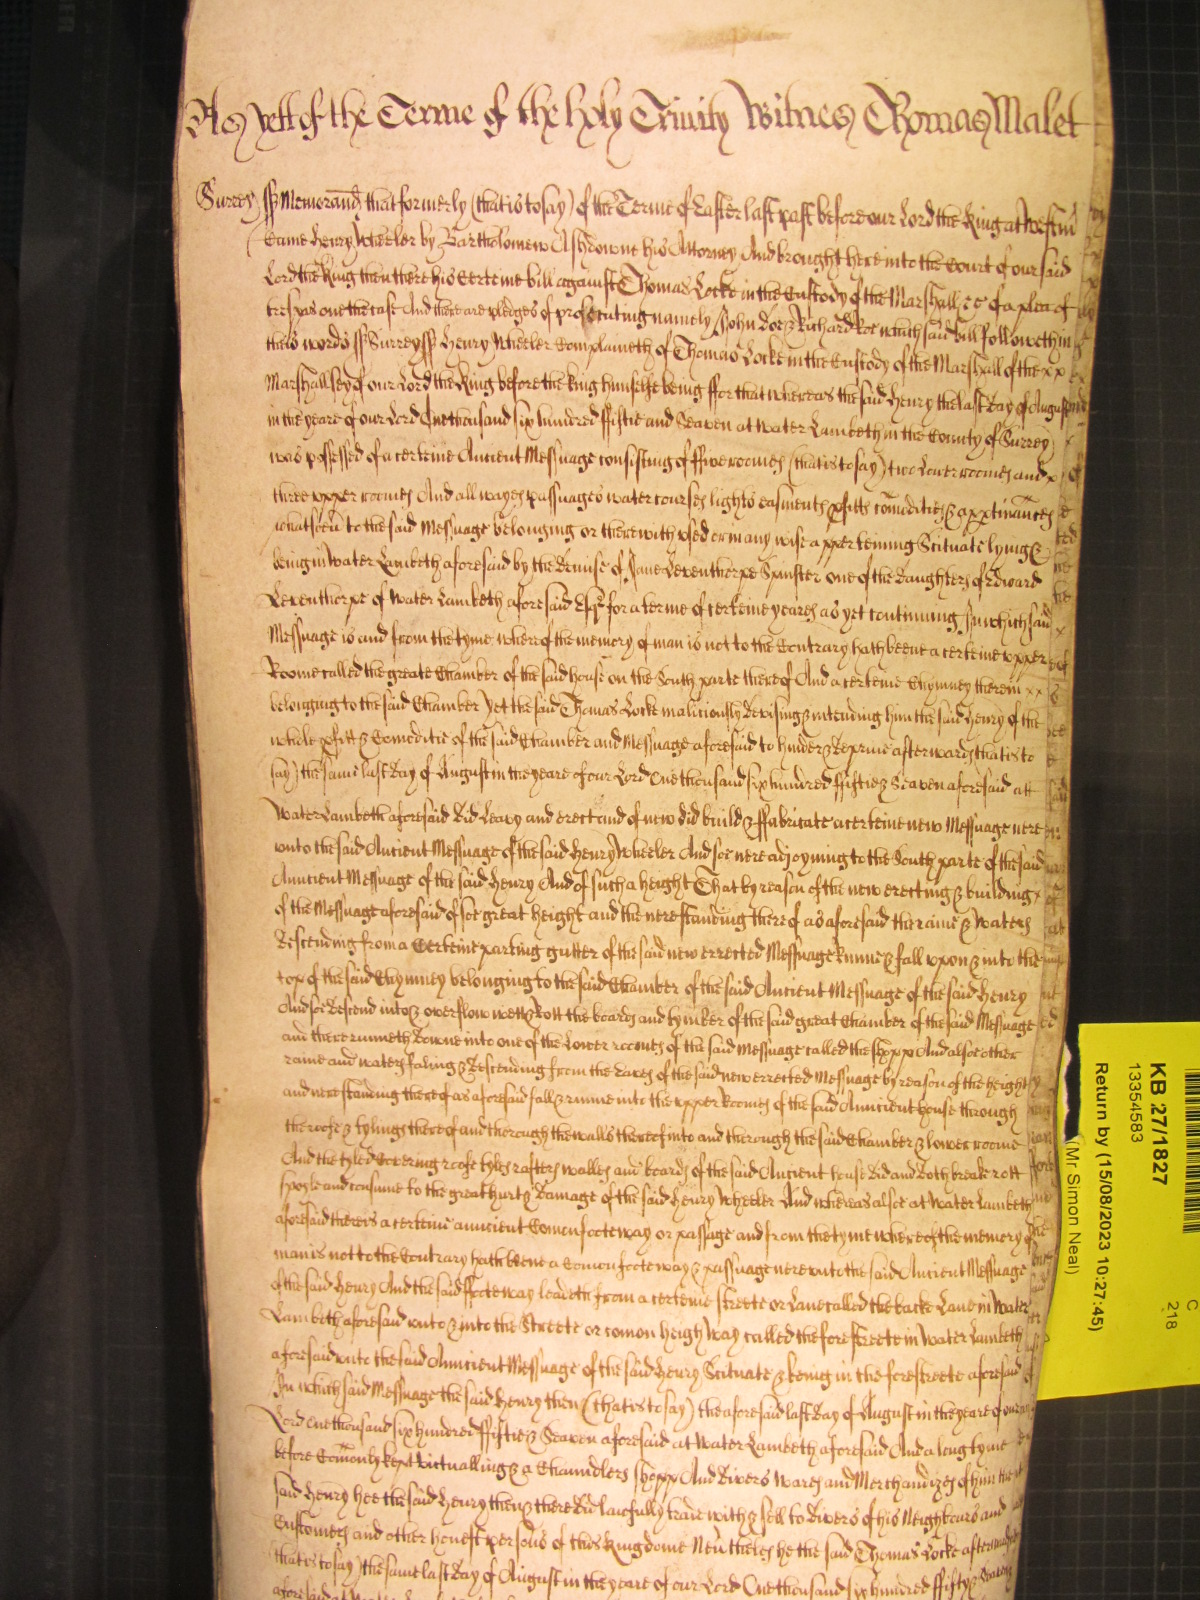 As yett of the Terme of the holy Trinity Witnes Thomas Malet
Surrey ss Memorand that formerly (that is to say) of the Terme of Easter last past before our Lord the King at Westm
Came Henry Wheeler by Bartholomew Ashdowne his Attorney And brought here into the Court of our said
Lord the King then there his Certeine bill against Thomas Locke in the Custody of the Marshall &c of a plea of
trespas one the case And there are pledges of prosecuting namely John Doe & Richard Roe which said bill followeth in
theis words ss Surrey ss Henry Wheeler Complaineth of Thomas Locke in the Custody of the Marshall of the x x
Marshallsey of our Lord the King before the king himselfe being ffor that whereas the said Henry the last day of August
in the yeare of our Lord One thousand six hundred ffiftie and Seaven at Water Lambeth in the County of Surrey
was possessed of a certeine Ancient Messuage consisting of ffive roomes (that is to say) two Lower roomes and x
three upper roomes And all wayes passuages water courses lights easments pfitts comodities & apptinances
whatsoeu to the said Messuage belonging or therewith used or in any wise apperteining Scituate lying &
being in Water Lambeth aforesaid by the demise of Jane Leventhorpe Spinster one of the daughters of Edward
Leventhorpe of Water Lambeth aforesaid Esqr for a terme of certeine yeares as yet continuing In which said
Messuage is and from the tyme whereof the memory of man is not to the Contrary hath beene a certeine upper
Roome called the greate Chamber of the said house on the South parte thereof And a certeine Chymney therein x x
belonging to the said Chamber Yet the said Thomas Locke maliciously devising & intending him the said Henry of the
whole pfitt & Comoditie of the said Chamber and Messuage aforesaid to hinder & deprive afterwards (that is to
say) the same last day of August in the yeare of our Lord One thousand six hundred ffiftie & Seaven aforesaid att
Water Lambeth aforesaid did Leavy and erect and of new did build & ffabricate a certeine new Messuage nere
unto the said Ancient Messuage of the said Henry Wheeler And soe nere adjoyning to the South parte of the said
Anncient Messuage of the said Henry And of such a height That by reason of the new erecting & building x
of the Messuage aforesaid of soe great height and the nere standing thereof as aforesaid the raine & Waters
descending from a Certeine parting gutter of the said new errected Messuage runne & fall upon & into the
top of the said Chymney belonging to the said Chamber of the said Ancient Messuage of the said Henry
And soe descend into & overflow wett & Rott the boards and tymber of the said great Chamber of the said Messuage
and there runneth downe into one of the Lower roomes of the said Messuage called the shopp And alsoe other
raine and waters faling & descending from the Eaves of the said new errected Messuage by reason of the height
and nere standing thereof as aforesaid fall & runne into the upper Roomes of the said Anncient house through
the roofe & tylings thereof and thorough the walls thereof into and thorough the said Chamber & lower roome
And the tyled Covering roofe tyles rafters walles and boards of the said Ancient house did and doth breake rott
spoyle and consume to the great hurt & damage of the said Henry Wheeler And whereas alsoe at Water Lambeth
aforesaid there is a certeine anncient Comon footeway or passage and from the tyme whereof the memory of
man is not to the Contrary hath beene a Comon footeway & passuage nere unto the said Ancient Messuage
of the said Henry And the said ffooteway leadeth from a certeine streete or Lane called the backe Lane in Water
Lambeth aforesaid unto & into the Streete or comon heigh Way called the forestreete in Water Lambeth
aforesaid unto the said Anncient Messuage of the said Henry Scituate & being in the forestreete aforesaid
In which said Messuage the said Henry then (that is to say) the aforesaid last day of August in the yeare of our
Lord One thousand six hundred ffiftie & Seaven aforesaid at Water Lambeth aforesaid And a long tyme
before Comonly kept Victualling & a Chaundlers shopp And divers Wares and Merchandizes of him the
said Henry hee the said Henry then & there did lawfully trade with & sell to divers of his Neighbours and
Customers and other honest persons of this Kingdome Neutheles he the said Thomas Locke afterwards
(that is to say) the same last day of August in the yeare of our Lord One thousand six hundred ffifty & Seaven
KB 27/1827
13354583
Return by (15/08/2023 10:27:45)
(Mr Simon Neal)
C
218